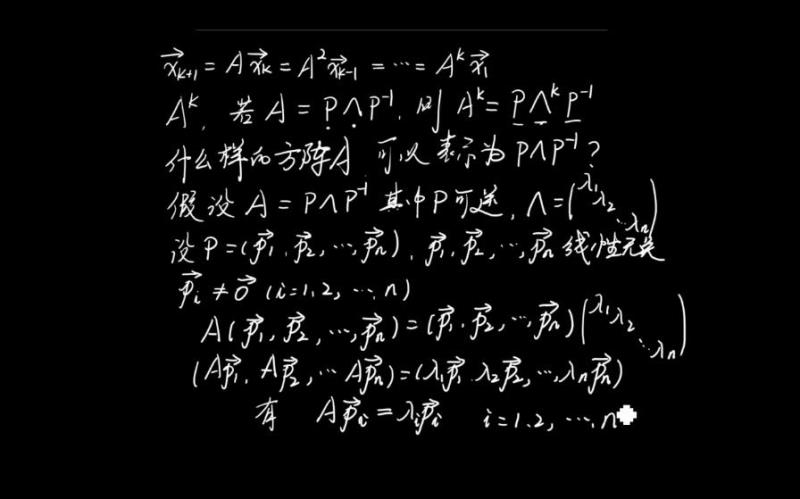 x⃗ₖ₊₁ = Ax⃗ₖ = A²x⃗ₖ₋₁ = ⋯ = Aᵏx⃗₁
Aᵏ, 若 A = PΛP⁻¹, 则 Aᵏ = PΛᵏP⁻¹
什么样的方阵A 可以表示为 PΛP⁻¹?
假设 A = PΛP⁻¹ 其中P可逆, Λ = (λ₁ λ₂ ⋱ λₙ)
设 P = (p⃗₁, p⃗₂, ⋯, p⃗ₙ), p⃗₁, p⃗₂, ⋯, p⃗ₙ 线性无关
p⃗ᵢ ≠ 0⃗ (i=1,2, ⋯, n)
A(p⃗₁, p⃗₂, ⋯, p⃗ₙ) = (p⃗₁, p⃗₂, ⋯, p⃗ₙ)(λ₁ λ₂ ⋱ λₙ)
(Ap⃗₁, Ap⃗₂, ⋯ Ap⃗ₙ) = (λ₁p⃗₁, λ₂p⃗₂, ⋯, λₙp⃗ₙ)
有 Ap⃗ᵢ = λᵢp⃗ᵢ i=1,2, ⋯, n